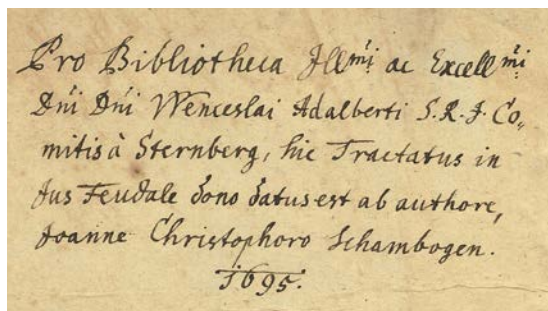 Pro Bibliotheca Illmi ac Excellmi
Dni Dni Wenceslai Adalberti S.R.I. Co„
mitis à Sternberg, hic Tractatus in
Jus Feudale dono datus est ab authore,
Joanne Christophoro Schambogen.
1695.